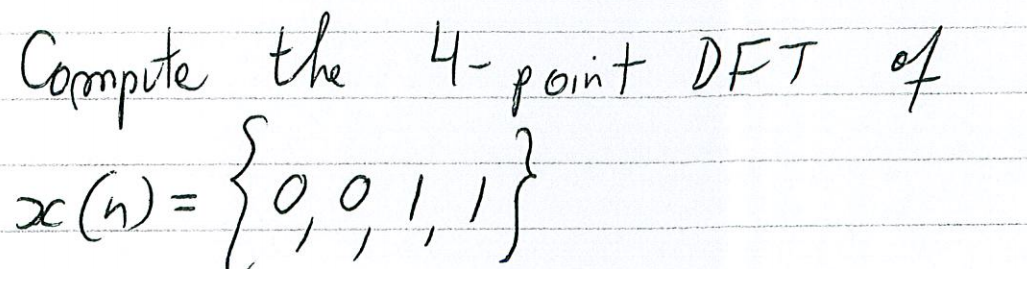 Compute the 4-point DFT of
x(n) = {0, 0, 1, 1}